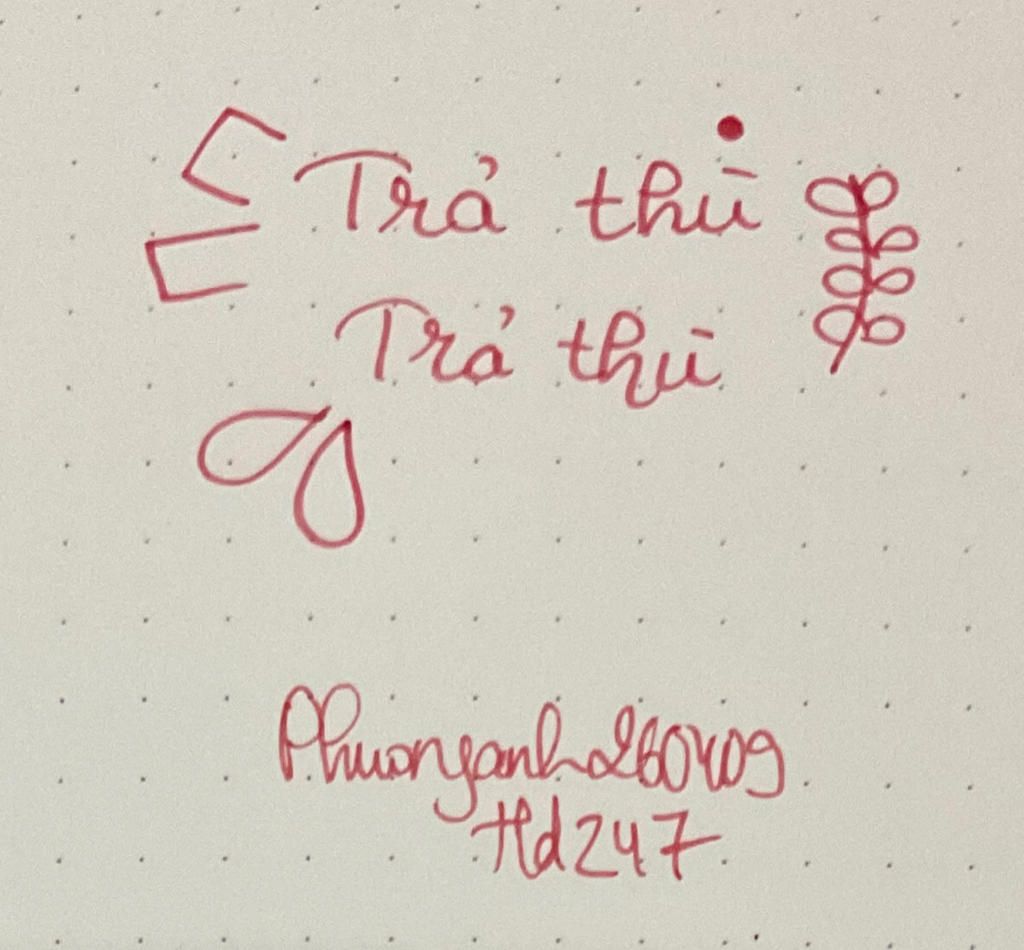 Trả thù
Trả thù
Phuonganh260409
Hd247